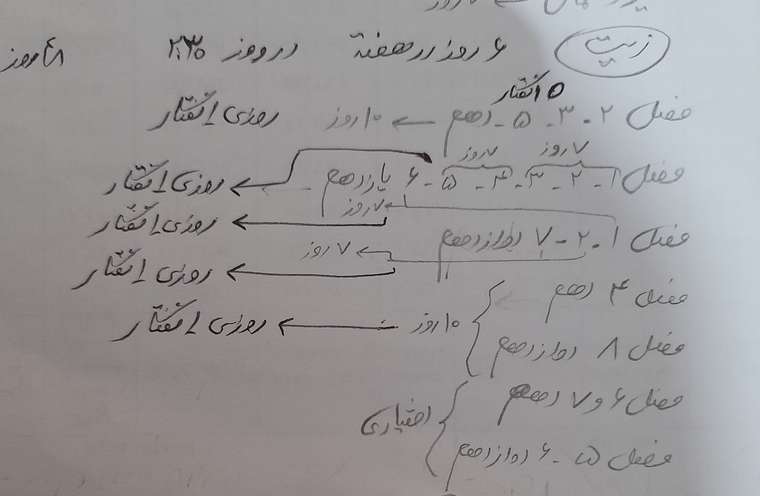 زیست ۶ روز در هفته در روز ۲:۳۰ ۴۸ روز
۵ گفتار
فصل ۲ - ۳ - ۵ دهم ← ۱۰ روز روزی ۱ گفتار
۷ روز ۷ روز
فصل ۱ - ۲ - ۳ - ۴ - ۵ - ۶ یازدهم روزی ۱ گفتار
۷ روز روزی ۱ گفتار
فصل ۱ - ۲ - ۷ دوازدهم
۷ روز روزی ۱ گفتار
فصل ۴ دهم
۱۰ روز روزی ۱ گفتار
فصل ۸ دوازدهم
فصل ۶ و ۷ دهم
اختیاری
فصل ۵ - ۶ دوازدهم